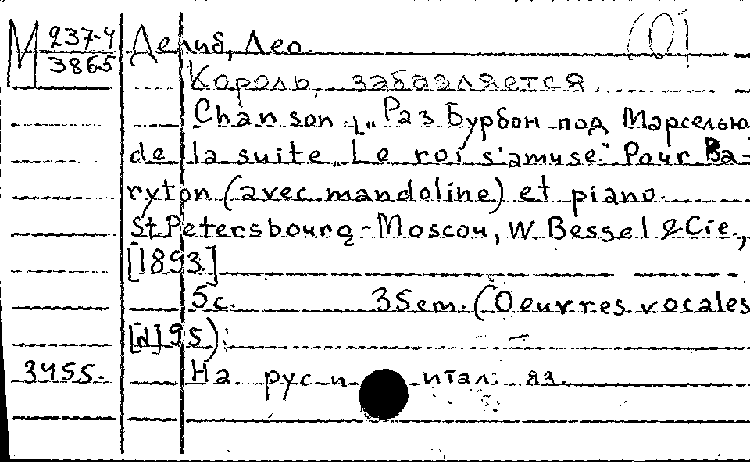 М 237-4
3865
Делиб, Лео.
(0)
Король забавляется.
Chanson „Раз Бурбон под Марселью
de la suite „Le roi s'amuse." Pour Ba-
ryton (avec mandoline) et piano.
St Petersbourg-Moscou, W. Bessel & Cie,
[1893]
5c. 35em. (Oeuvres vocales
[N] 95).
3455. На рус и итал. яз.